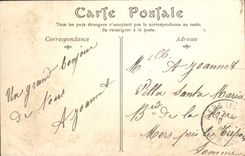 Carte Postale
Tous les pays étrangers n'acceptent pas la correspondance au recto.
Se renseigner à la poste.
Correspondance
Adresse
M. A Joannot
Villa Santa Maria
Bd de la Mer
Mers
Somme
Un grand bonjour
de Nous
A Joannot